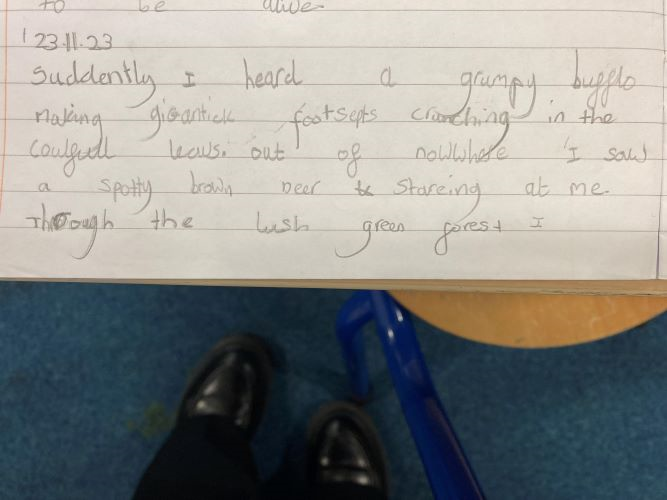 to be alive
23.11.23
Suddently I heard a grumpy bufflo
making gigantick footsepts crunching in the
coulfull leavs. out of nowwhere I saw
a spotty brown deer stareing at me.
Through the lush green forest I